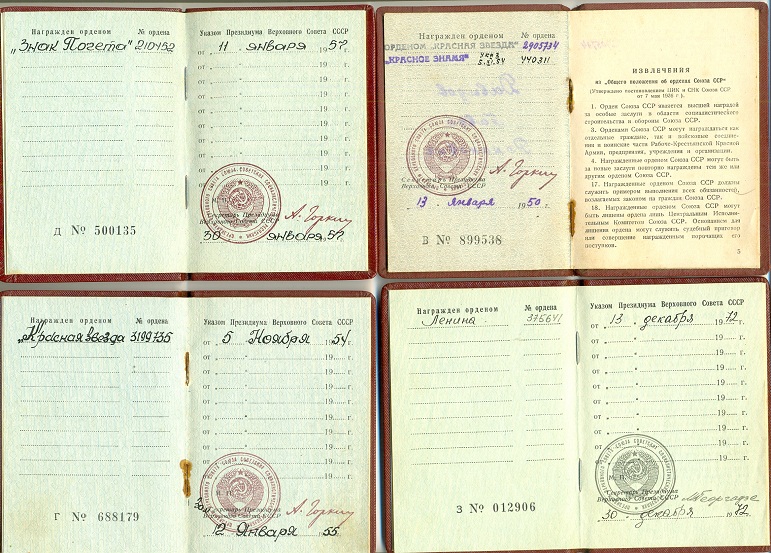 Награжден орденом № ордена
"Знак Почета" 210452
Д № 500135
Указом Президиума Верховного Совета СССР
от 11 января 1957 г.
от 19 г.
от 19 г.
от 19 г.
от 19 г.
от 19 г.
от 19 г.
М. П.
Секретарь Президиума
Верховного Совета СССР
А. Горкин
30 января 1957
Награжден орденом № ордена
ОРДЕНОМ „КРАСНАЯ ЗВЕЗДА" 2905734
"КРАСНОЕ ЗНАМЯ" указ 5.XI.54 440311
Секретарь Президиума
Верховного Совета СССР
А. Горкин
13 января 1950 г.
В № 899538
ИЗВЛЕЧЕНИЯ
из „Общего положения об орденах Союза ССР"
(Утверждено постановлением ЦИК и СНК Союза ССР
от 7 мая 1936 г.).
1. Орден Союза ССР является высшей наградой
за особые заслуги в области социалистического
строительства и обороны Союза ССР.
3. Орденами Союза ССР могут награждаться как
отдельные граждане, так и войсковые соединения
и воинские части Рабоче-Крестьянской Красной
Армии, предприятия, учреждения и организации.
4. Награжденные орденом Союза ССР могут быть
за новые заслуги повторно награждены тем же или
другим орденом Союза ССР.
17. Награжденные орденом Союза ССР должны
служить примером выполнения всех обязанностей,
возлагаемых законом на граждан Союза ССР.
18. Награжденные орденом Союза ССР могут
быть лишены ордена лишь Центральным Исполни-
тельным Комитетом Союза ССР. Основанием для
лишения ордена могут служить судебный приговор
или совершение награжденным порочащих его
поступков.
5
Награжден орденом № ордена
"Красная звезда" 3199735
Г № 688179
Указом Президиума Верховного Совета СССР
от 5 Ноября 1954 г.
от 19 г.
от 19 г.
от 19 г.
от 19 г.
от 19 г.
от 19 г.
М. П.
Секретарь Президиума
Верховного Совета СССР
А. Горкин
12 Января 1955
Награжден орденом № ордена
Ленина 375641
З № 012906
Указом Президиума Верховного Совета СССР
от 13 декабря 1972 г.
от 19 г.
от 19 г.
от 19 г.
от 19 г.
от 19 г.
от 19 г.
М. П.
Секретарь Президиума
Верховного Совета СССР
М. Георгадзе
30 декабря 1972 г.